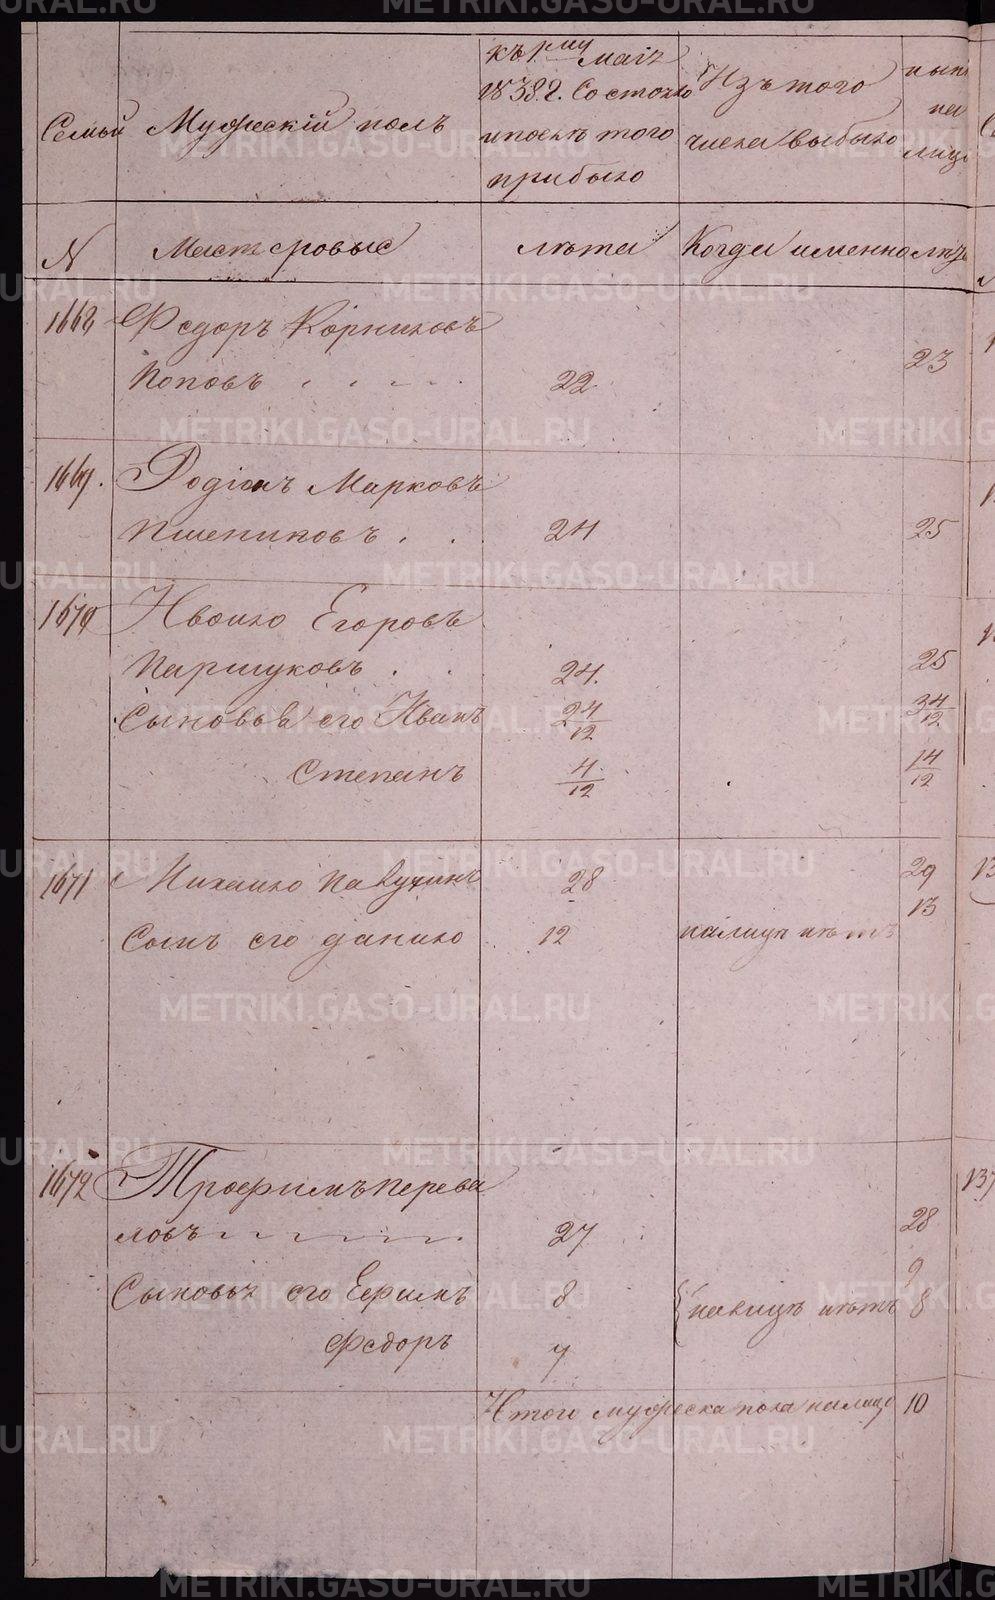 Семьи Мужескій полъ
къ 1му Маія 1838 г. Состояло и послѣ того прибыло
Изъ того числа выбыло
ныне на лицо
N Мастеровые лѣта Когда именно лѣта
1668 Федоръ Корниловъ
Поповъ 22 23
1669. Родіонъ Марковъ
Пшениковъ 24 25
1670 Ивойло Егоровъ
Паршуковъ 24. 25
Сыновья его Иванъ 24/12 34/12
Степанъ 4/12 14/12
1671 Михайло Павушинъ 28 29
Сынъ его Данило 12 налицѣ нѣтъ 13
1672 Трофимъ Перева
ловъ 27 28
Сыновья его Ефимъ 8 налицѣ нѣтъ 9
Федоръ 7 8
Итого мужеска пола налицо 10
METRIKI.GASO-URAL.RU